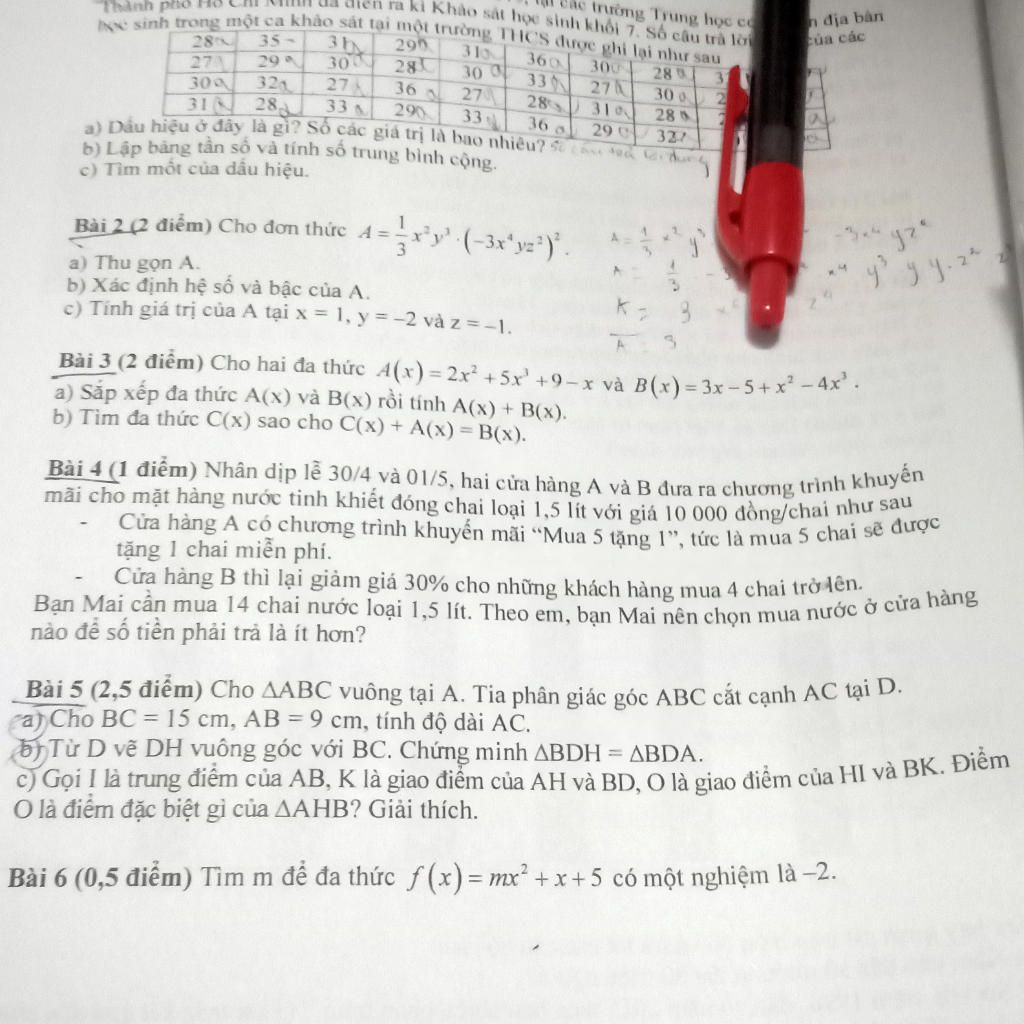 Thành phố Hồ Chí Minh đã diễn ra kì Khảo sát học sinh khối 7. Số câu trả lời của các
các trường Trung học địa bàn
học sinh trong một ca khảo sát tại một trường THCS được ghi lại như sau
28 35 31 29 31 36 30 28
27 29 30 28 30 33 27 30
30 32 27 36 27 28 31 28
31 28 33 29 33 36 29 32
a) Dấu hiệu ở đây là gì? Số các giá trị là bao nhiêu?
b) Lập bảng tần số và tính số trung bình cộng.
c) Tìm mốt của dấu hiệu.
Bài 2 (2 điểm) Cho đơn thức A = 1/3 x²y³ · (−3x⁴yz²)².
a) Thu gọn A.
b) Xác định hệ số và bậc của A.
c) Tính giá trị của A tại x = 1, y = −2 và z = −1.
Bài 3 (2 điểm) Cho hai đa thức A(x) = 2x² + 5x³ + 9 − x và B(x) = 3x − 5 + x² − 4x³.
a) Sắp xếp đa thức A(x) và B(x) rồi tính A(x) + B(x).
b) Tìm đa thức C(x) sao cho C(x) + A(x) = B(x).
Bài 4 (1 điểm) Nhân dịp lễ 30/4 và 01/5, hai cửa hàng A và B đưa ra chương trình khuyến
mãi cho mặt hàng nước tinh khiết đóng chai loại 1,5 lít với giá 10 000 đồng/chai như sau
- Cửa hàng A có chương trình khuyến mãi “Mua 5 tặng 1”, tức là mua 5 chai sẽ được
tặng 1 chai miễn phí.
- Cửa hàng B thì lại giảm giá 30% cho những khách hàng mua 4 chai trở lên.
Bạn Mai cần mua 14 chai nước loại 1,5 lít. Theo em, bạn Mai nên chọn mua nước ở cửa hàng
nào để số tiền phải trả là ít hơn?
Bài 5 (2,5 điểm) Cho ΔABC vuông tại A. Tia phân giác góc ABC cắt cạnh AC tại D.
a) Cho BC = 15 cm, AB = 9 cm, tính độ dài AC.
b) Từ D vẽ DH vuông góc với BC. Chứng minh ΔBDH = ΔBDA.
c) Gọi I là trung điểm của AB, K là giao điểm của AH và BD, O là giao điểm của HI và BK. Điểm
O là điểm đặc biệt gì của ΔAHB? Giải thích.
Bài 6 (0,5 điểm) Tìm m để đa thức f(x) = mx² + x + 5 có một nghiệm là −2.